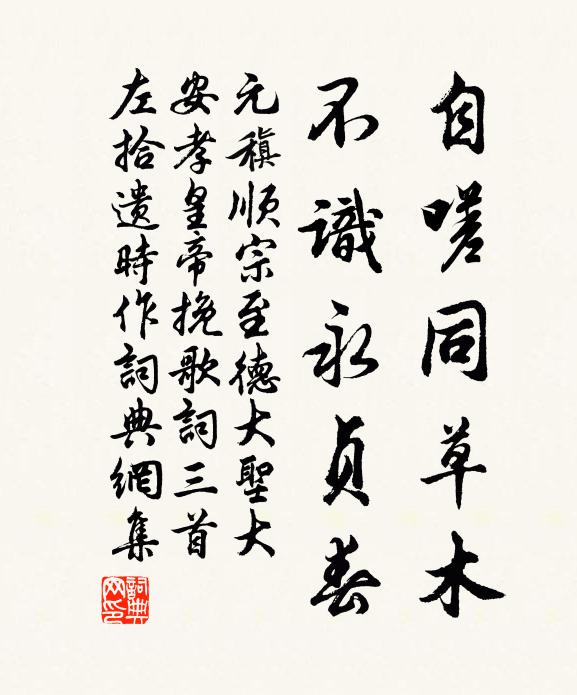 自嗟同草木
不識永貞春
元稹順宗至德大聖大
安孝皇帝挽歌詞三首
左拾遺時作詞典網集
詞典網印